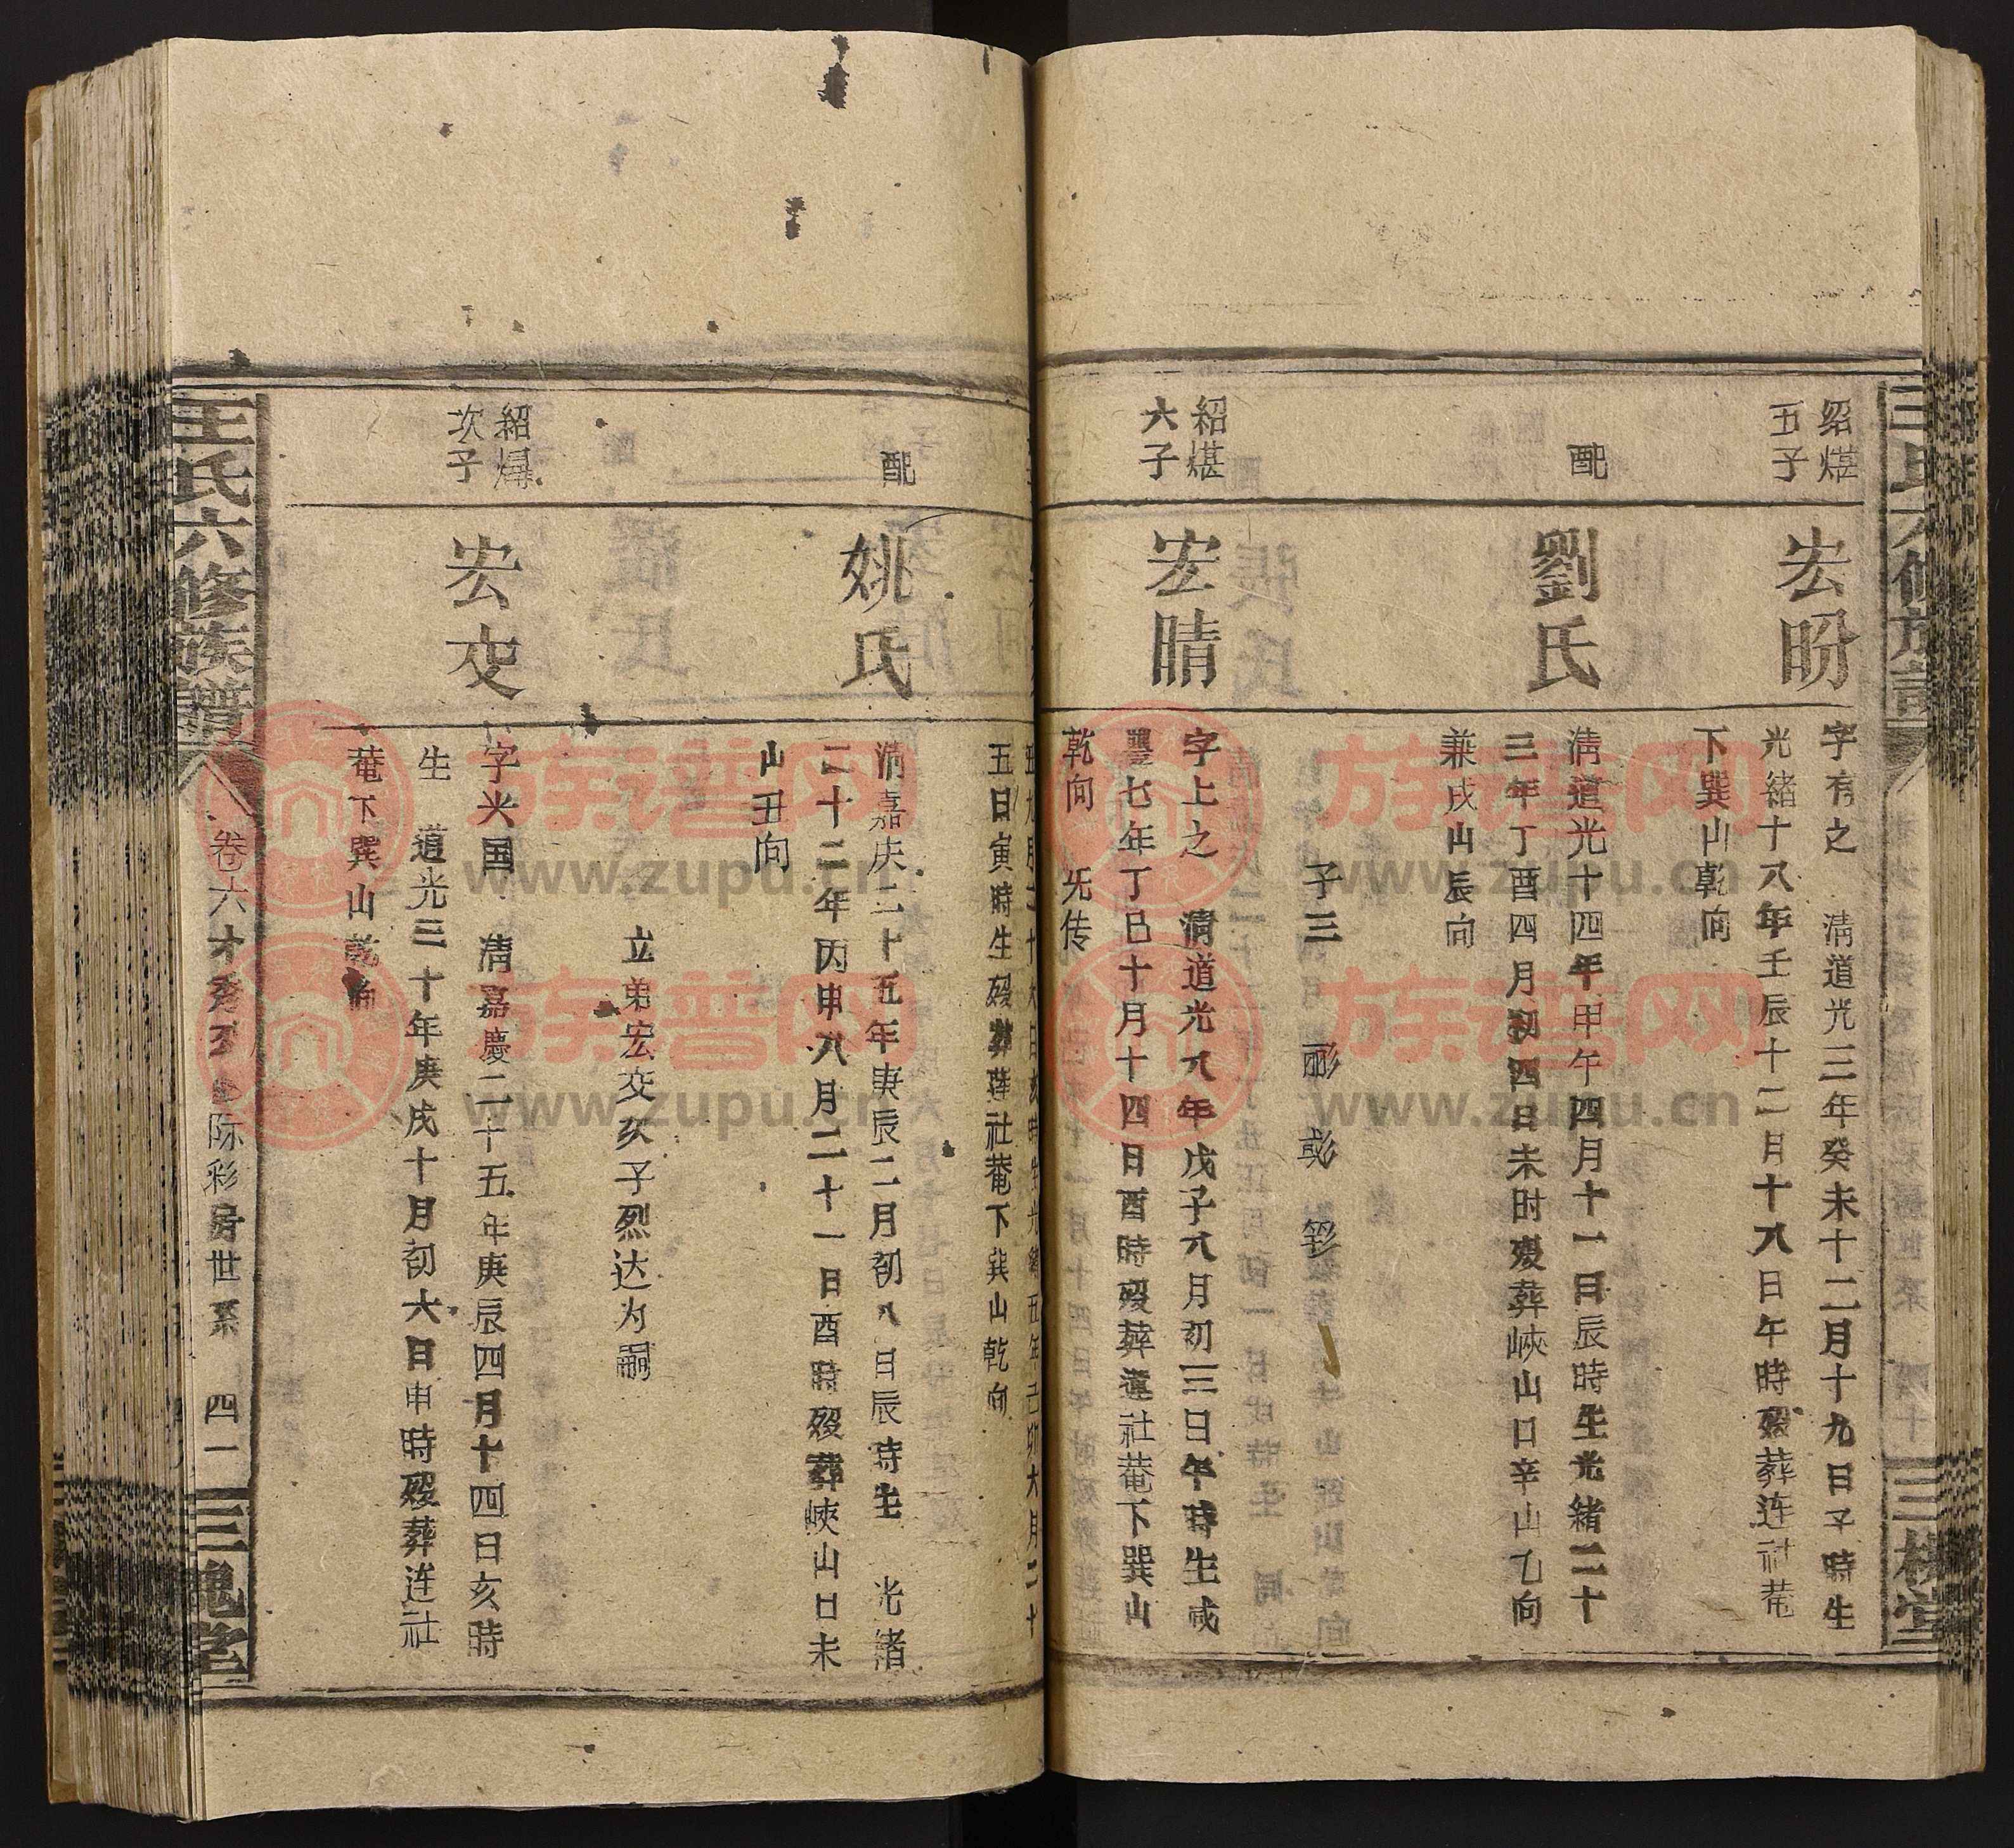 紹煁
五子
宏盼
字有之 清道光三年癸未十二月十九日子時生
光緒十八年壬辰十二月十八日午時殁葬连社菴
下巽山乾向
配
劉氏
清道光十四年甲午四月十一日辰時生光緒二十
三年丁酉四月初四日未时殁葬峽山口辛山乙向
兼戌山辰向
子三 彨 彧
紹煁
六子
宏晴
字上之 清道光八年戊子八月初三日午時生咸
豐七年丁巳十月十四日酉時殁葬蓮社菴下巽山
乾向 旡传
三槐堂
五日寅時生殁葬莲社菴下巽山乾向
配
姚氏
清嘉庆二十五年庚辰二月初八日辰時生 光緒
二十二年丙申八月二十一日酉時殁葬峽山口未
山丑向
立弟宏交次子烈达为嗣
紹
次子
宏交
字光国 清嘉慶二十五年庚辰四月十四日亥時
生 道光三十年庚戌十月初六日申時殁葬连社
菴下巽山乾向
王氏六修族譜
卷六 彩房世系 四一
三槐堂
族谱网
www.zupu.cn
族谱网
www.zupu.cn
族谱网
www.zupu.cn
族谱网
www.zupu.cn